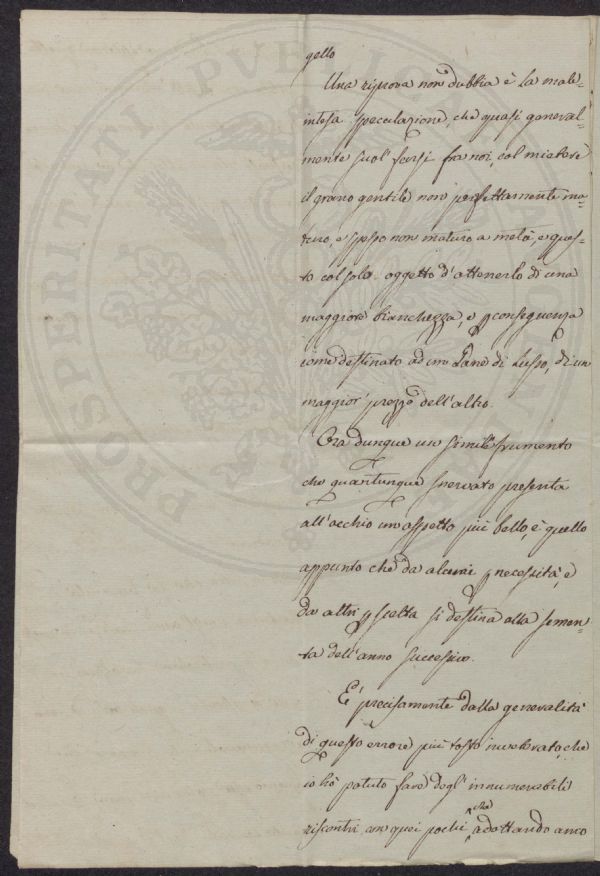 gello
Una riprova non dubbia è la male-
intesa specolazione, che quasi general-
mente suol farsi fra noi, col mietere
il grano gentile non perfettamente ma-
turo, e spesso non maturo a metà, e ques-
to col solo oggetto d'ottenerlo di una
maggiore bianchezza, e p conseguenza
come destinato ad un Pane di Lusso, di un
maggior prezzo dell'altro.
Ora dunque un simile frumento
che quantunque snervato presenta
all'occhio un aspetto più bello, è quello
appunto che da alcuni p necessità, e
da altri p scelta si destina alla semen-
ta dell'anno successivo.
E' precisamente dalla generalità
di questo errore più tosto inveterato, che
io hò potuto fare degl'innumerabili
riscontri con quei pochi che adottando anco
PROSPERITATI PVBLICAE